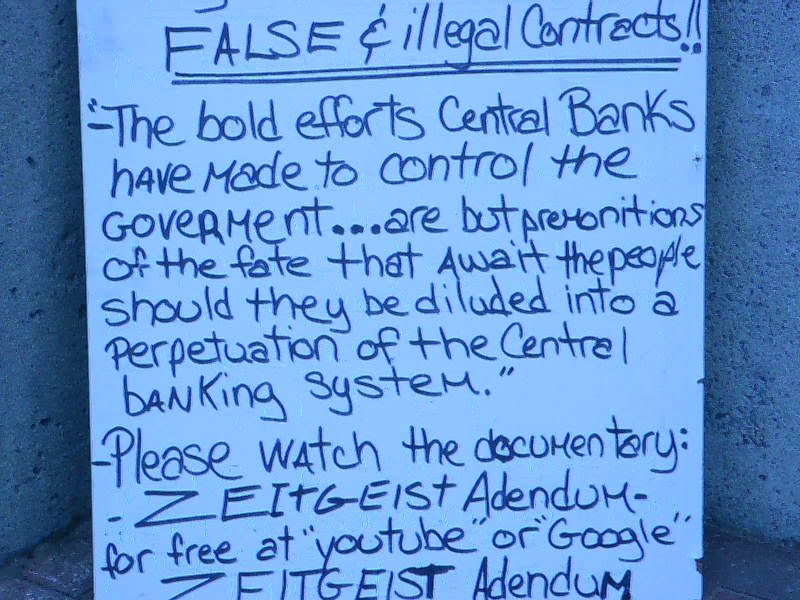 FALSE & illegal Contracts!!
"-The bold efforts Central Banks
have made to control the
Goverment...are but premonitions
of the fate that await the people
should they be diluted into a
perpetuation of the Central
banking system."
-Please watch the documentary:
- ZEITGEIST Adendum-
for free at "youtube" or "Google"
ZEITGEIST Adendum